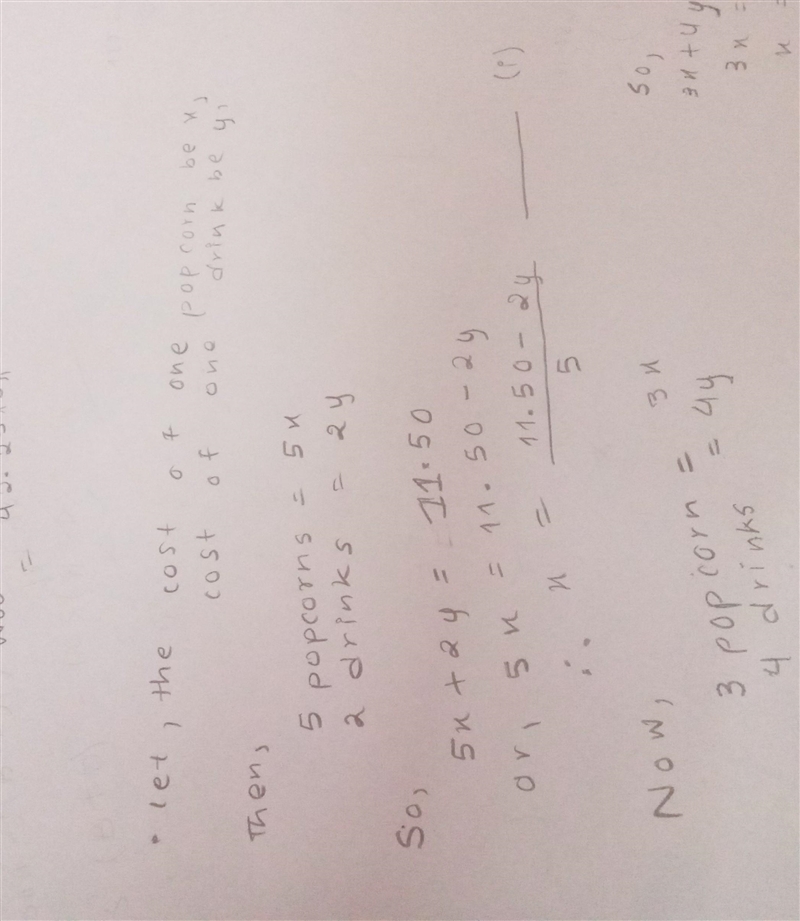 =
• let, the cost of one popcorn be x,
cost of one drink be y,
Then,
5 popcorns = 5x
2 drinks = 2y
So,
5x + 2y = 11.50
or, 5x = 11.50 - 2y
∴ x = 11.50 - 2y / 5 —— (i)
Now,
3 popcorn = 3x
4 drinks = 4y
So,
3x + 4y
3x =
x =